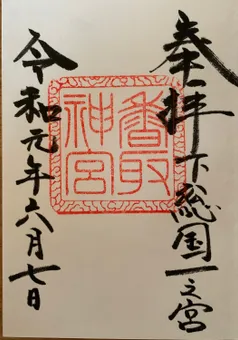 奉拝
下総国一之宮
香取
神宮
令和元年六月七日